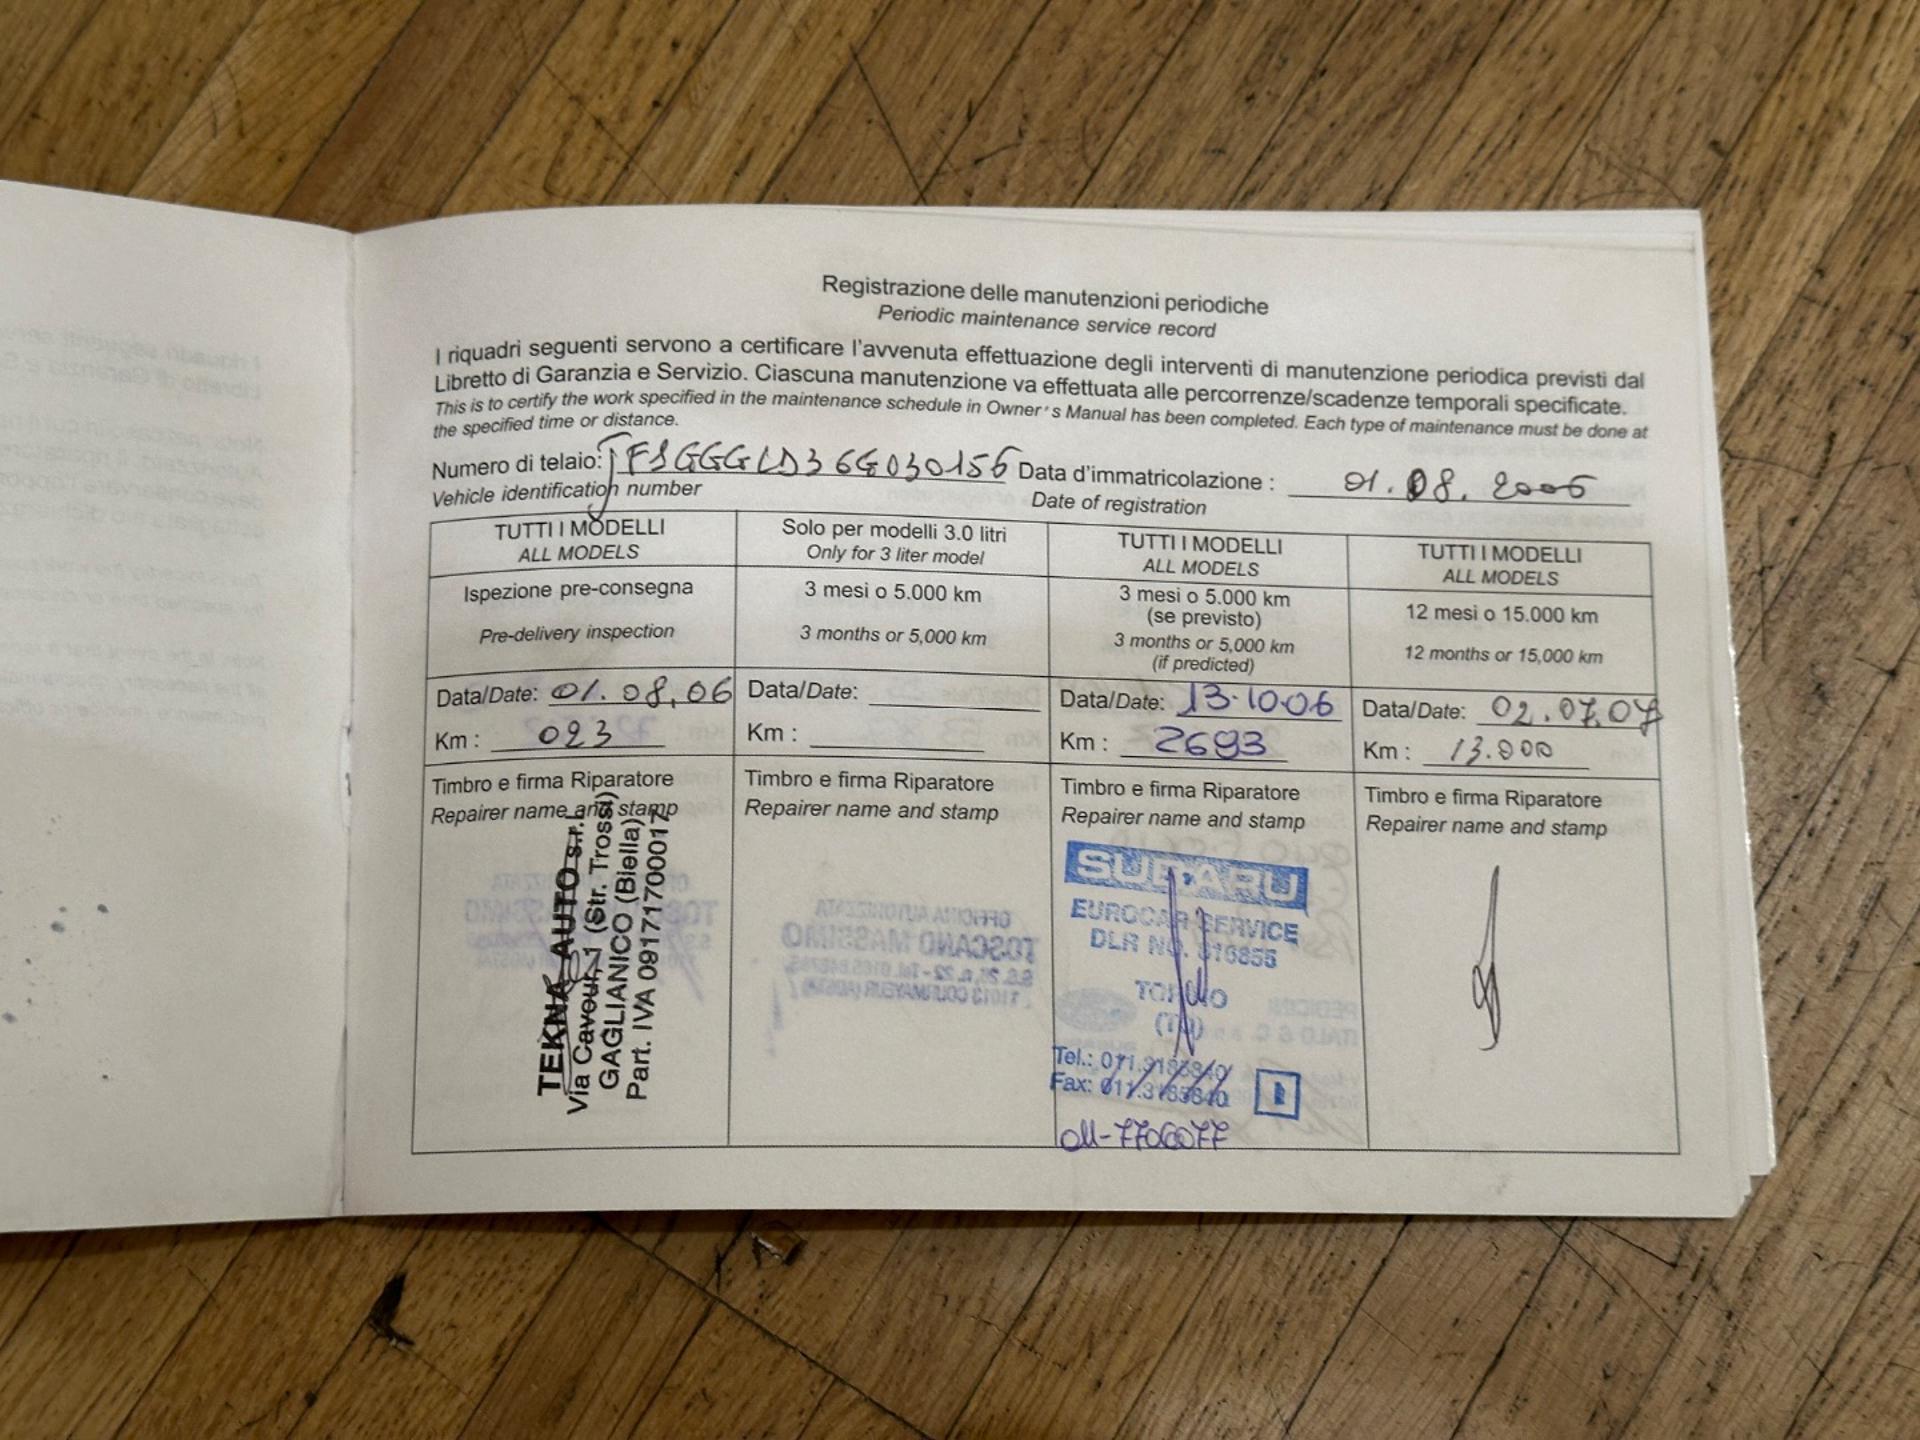 Registrazione delle manutenzioni periodiche
Periodic maintenance service record
I riquadri seguenti servono a certificare l'avvenuta effettuazione degli interventi di manutenzione periodica previsti dal
Libretto di Garanzia e Servizio. Ciascuna manutenzione va effettuata alle percorrenze/scadenze temporali specificate.
This is to certify the work specified in the maintenance schedule in Owner's Manual has been completed. Each type of maintenance must be done at
the specified time or distance.
Numero di telaio: JF1GGGLD36G030156 Data d'immatricolazione : 01.08.2006
Vehicle identification number Date of registration
TUTTI I MODELLI
ALL MODELS
Ispezione pre-consegna
Pre-delivery inspection
Data/Date: 01.08.06
Km : 023
Timbro e firma Riparatore
Repairer name and stamp
TEKNA AUTO s.r.l.
Via Cavour, 1 (Str. Trossi)
GAGLIANICO (Biella)
Part. IVA 09171700017
Solo per modelli 3.0 litri
Only for 3 liter model
3 mesi o 5.000 km
3 months or 5,000 km
Data/Date:
Km :
Timbro e firma Riparatore
Repairer name and stamp
TUTTI I MODELLI
ALL MODELS
3 mesi o 5.000 km
(se previsto)
3 months or 5,000 km
(if predicted)
Data/Date: 13.10.06
Km : 2693
Timbro e firma Riparatore
Repairer name and stamp
SUBARU
EUROCAR SERVICE
DLR NO. 316855
TORINO
(TO)
Tel.:
Fax:
011-7706077
TUTTI I MODELLI
ALL MODELS
12 mesi o 15.000 km
12 months or 15,000 km
Data/Date: 02.07.07
Km : 13.000
Timbro e firma Riparatore
Repairer name and stamp